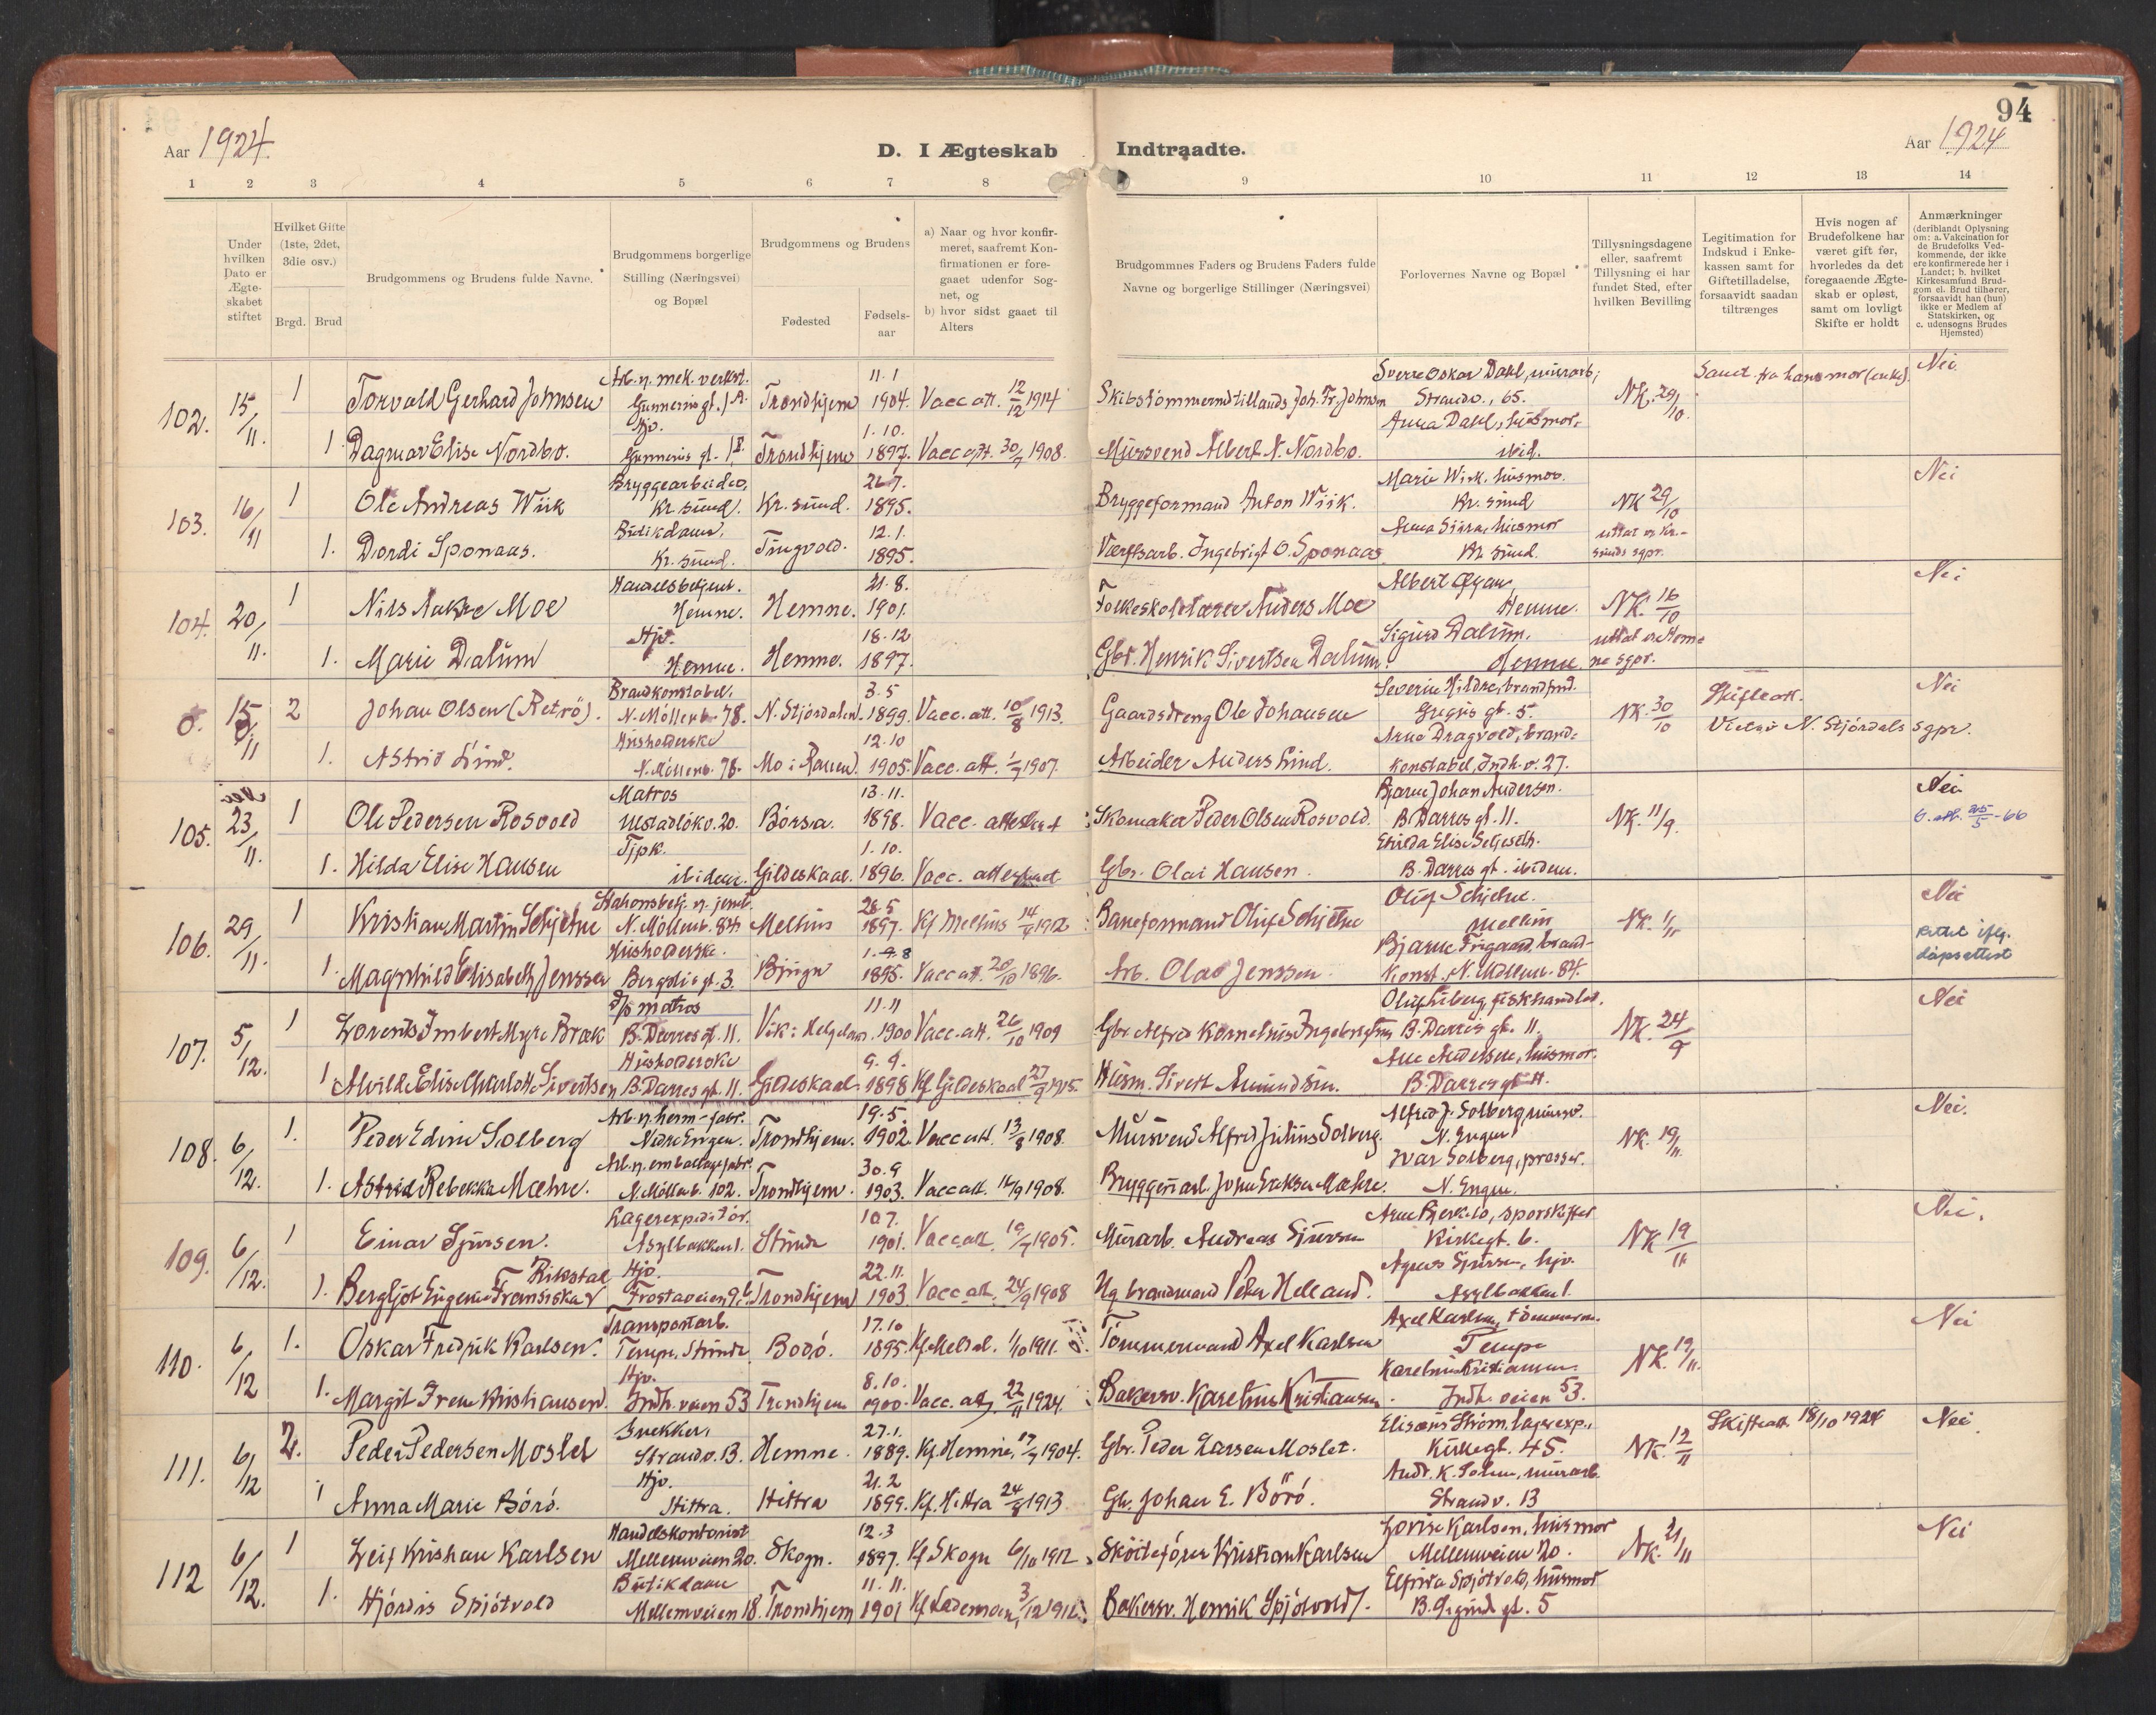 94
Aar 1924.
D. I Ægteskab Indtraadte.
Aar 1924
1 2 3 4 5 6 7 8 9 10 11 12 13 14
Under hvilken Dato er Ægteskabet stiftet
Hvilket Gifte (1ste, 2det, 3die osv.)
Brgd. Brud
Brudgommens og Brudens fulde Navne.
Brudgommens borgerlige Stilling (Næringsvei) og Bopæl
Brudgommens og Brudens
Fødested
Fødselsaar
a) Naar og hvor konfirmeret, saafremt Konfirmationen er foregaaet udenfor Sognet, og
b) hvor sidst gaaet til Alters
Brudgommnes Faders og Brudens Faders fulde Navne og borgerlige Stillinger (Næringsvei)
Forlovernes Navne og Bopæl
Tillysningsdagene eller, saafremt Tillysning ei har fundet Sted, efter hvilken Bevilling
Legitimation for Indskud i Enkekassen samt for Giftetilladelse, forsaavidt saadan tiltrænges
Hvis nogen af Brudefolkene har været gift før, hvorledes da det foregaaende Ægteskab er opløst, samt om lovligt Skifte er holdt
Anmærkninger (deriblandt Oplysning om: a. Vakcination for de Brudefolks Vedkommende, der ikke ere konfirmerede her i Landet; b. hvilket Kirkesamfund Brudgom el. Brud tilhører, forsaavidt han (hun) ikke er Medlem af Statskirken, og c. udensogns Brudes Hjemsted)
Arb. v. mek. verkst. 11.1 Sverre Oskar Dahl, murarb,
102. 15/11. 1 Torvald Gerhard Johnsen Gunnerus gt. 1 A. Trondhjem 1904. Vacc att. 12/12 1914 Skibstømmermd tillands Joh. Fr. Johnsen Strandv., 65. NK. 29/10. Samt. fra hans mor (enke). Nei
Hjv. 1.10. Anna Dahl, husmor,
1. Dagmar Elise Nordbo. Gunnerus gt. Trondhjem 1897. Vacc att. 30/9 1908. Mursvend Albert N. Nordbo. ibid.
Bryggearbeider, 26.7. Marie Wiik, husmor.
103. 16/11 1 Ole Andreas Wiik Kr. sund. Kr. sund. 1895. Bryggeformand Anton Wiik. Kr. sund NK 29/10 Nei
Butikdame, 12.1. husmor
1. Dordi Sponaas. Kr. sund. Tingvold. 1895. Værftsarb. Ingebrigt O. Sponaas Kr. sund. sunds sgpr.
Handelsbetjent. 21.8. Albert
104. 20/11. 1 Nils Aakre Moe Hemne. Hemne. 1901. Folkeskolelærer Anders Moe Hemne. NK. 16/10 Nei
Hjv. 18.12 Sigurd Dalum.
1. Marie Dalum Hemne. Hemne. 1897. Gbr. Henrik Sivertsen Dalum. Hemne ne sgpr.
Brandkonstabel. 3.5 Severin Hildre, brandfmd.
0. 15/11 2 Johan Olsen (Retrö). N. Möllenb. 78. N. Stjördalen. 1899. Vacc. att. 10/8 1913. Gaardsdreng Ole Johansen gt. 5. NK. 30/10 Skifteatt. Nei
Husholderske 12.10 Arne Dragvold, brand- Viet av N. Stjördals sgpr.
1. Astrid Lind. N. Möllenb. 78. Mo i Ranen. 1905. Vacc. att. 1/9 1907. Arbeider Anders Lind. konstabel, Indh. v. 27.
Matros 13.11. Bjarne Johan Andersen.
105. 23/11. 1 Ole Pedersen Rosvold Ustadlökv. 20. Börsa. 1898. Vacc. attestert Skomaker Peder Olsen Rosvold. B. Darres gt. 11. NK. 11/9. Nei
25/5 -66
Tjpk. 1.10. Elise
1. Hilda Elise Hansen ibidem. Gildeskaal. 1896. Vacc. attestert Gbr. Olai Hansen. B. Darres gt. ibidem.
Stationsbetj. v. jernb. 26.5 Oluf Schjetne
106. 29/11. 1 Kristian Martin Schjetne N. Möllenb. 84. Melhus 1897. Kf Melhus 14/ 1912 Baneformand Oluf Schjetne Melhus NK. 1/11 Nei
Husholderske. 1. 8 Bjarne brand-
1. Magnhild Elisabeth Jenssen Bergslis gt. 3. Bjugn 1895. Vacc att. 20/10 1896. Arb. Olav Jenssen. konst. N. Möllenb. 84. rettet iflg. dåpsattest
D/p matros 11.11 fiskhandler.
107. 5/12. 1 Lorents Imbert Myre Bræk B. Darres gt. 11. Vik i Helgeland. 1900 Vacc. att. 26/10 1909 Gbr. Alfred Kornelius Ingebrigtsen B. Darres gt. 11. NK. 24/9 Nei
Husholderske 9.9. Andersen, husmor.
1 Alvild Elise Charlotte Sivertsen B. Darres gt. 11. Gildeskaal 1898 Kf. Gildeskaal 27/9 1915. Husm. Sivert Amundsen. B. Darres gt. 11.
Arb. v. herm-fabr. 19.5. Alfred J. Solberg, mursv.
108. 6/12. 1. Peder Edvin Solberg Nedre Engen. Trondhjem. 1902. Vacc att. 13/8 1908. Mursvend Alfred Julius Solberg. N. Engen NK. 19/11. Nei.
Arb. v. emballagefabr. 30.9 Ivar Solberg, presser.
1. Astrid Rebekka Mæhre. N. Möllenb. 102. Trondhjem. 1903. Vacc att. 14/9 1908. Bryggeriarb. Johan Mæhre. N. Engen.
Lagerexpeditör. 10.7. Arne
109. 6/12. 1 Einar Sjursen. Asylbakken 1. Strinda 1901. Vacc att. 19/ 1905. Murarb. Andreas Sjursen Kirkegt. 6. NK 19/11 Nei.
Rikstal Hjv. 22.11. Agnes Sjursen, hjv.
1. Bergljot Eugenie Fransiska Frostaveien 9 b. Trondhjem 1903 Vacc att. 24/9 1908 Ug. brandmand Peter Helland. Asylbakken 1.
Transportarb. 17.10 Axel Karlsen, tömmerm.
110. 6/12 1. Oskar Fredrik Karlsen. Tempe, Strinda Bodö. 1895 Kf. Meldal. 1/10 1911. Tömmermand Axel Karlsen Tempe NK. 19/11. Nei
Hjv. 8.10. Karelius Kristiansen.
1. Margit Irene Kristiansen. Indh. veien 53 Trondhjem 1900. Vacc. att. 22/11 1924 Bakersv. Karelius Kristiansen. Indh. veien 53.
Snekker, 27.1. Elisæus Ström, lagerexp.,
111. 6/12 2. Peder Pedersen Moslet Strandv. 13. Hemne. 1889. Kf. Hemne, 17/ 1904. Gbr. Peder Larsen Moslet. Kirkegt. 45. NK. 12/11 Skifteatt. 18/10 1924 Nei
Hjv. 21.2 Andr. K. murarb.
1 Anna Marie Börö. Hittra. Hittra 1899. Kf. Hittra 24/8 1913. Gbr. Johan E. Börö. Strandv. 13
Handelskontorist 12.3 Lovise Karlsen, husmor
112 6/12. 1 Leif Kristian Karlsen Mellemveien 20. Skogn. 1897. Kf Skogn 6/10 1912 Skötefører Kristian Karlsen Mellemveien 20. NK. 21/11 Nei
Butikdame 11.11. Elfrida Spjötvold, husmor
1. Hjördis Spjötvold Mellemveien 18. Trondhjem 1901 Kf Lademoen 3/12 191 Bakersv. Henrik Spjötvold. gt. 5